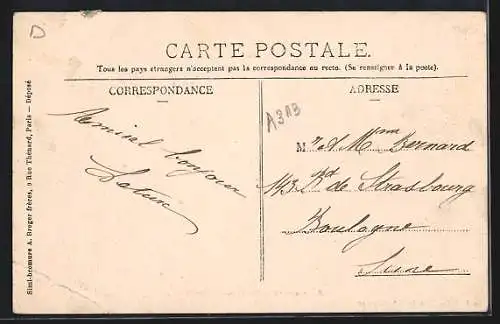 D
CARTE POSTALE.
Tous les pays étrangers n'acceptent pas la correspondance au recto. (Se renseigner à la poste).
CORRESPONDANCE
ADRESSE
A3A3
Amical bonjour
Mr & Mme Bernard
143 Bd de Strasbourg
Boulogne
Seine
Simi-bromure A. Breger frères, 9 Rue Thénard, Paris — Déposé